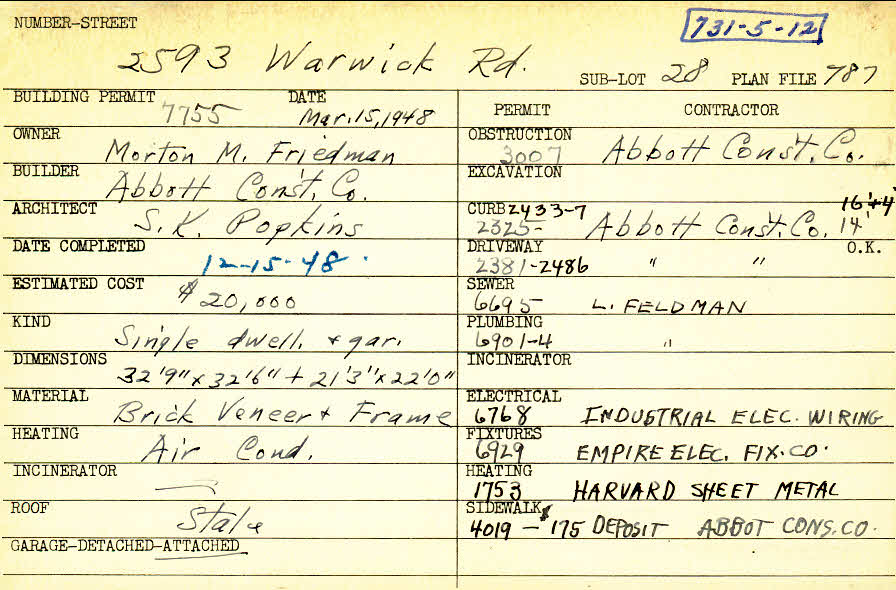 NUMBER-STREET
731-5-12
2593 Warwick Rd.
SUB-LOT 28 PLAN FILE 787
BUILDING PERMIT DATE
7755 Mar.15,1948
OWNER
Morton M. Friedman
BUILDER
Abbott Const. Co.
ARCHITECT
S.K. Popkins
DATE COMPLETED
12-15-48
ESTIMATED COST
$20,000
KIND
Single dwell. + gar.
DIMENSIONS
32'9" x 32'6" + 21'3" x 22'0"
MATERIAL
Brick Veneer + Frame
HEATING
Air Cond.
INCINERATOR
—
ROOF
Slale
GARAGE-DETACHED-ATTACHED
PERMIT CONTRACTOR
OBSTRUCTION
3007 Abbott Const. Co.
EXCAVATION
CURB 2433-7 16'+4'
2325- Abbott Const. Co. 14'
DRIVEWAY O.K.
2381-2486 " "
SEWER
6695 L. FELDMAN
PLUMBING
6901-4 "
INCINERATOR
ELECTRICAL
6768 INDUSTRIAL ELEC. WIRING
FIXTURES
6929 EMPIRE ELEC. FIX. CO.
HEATING
1753 HARVARD SHEET METAL
SIDEWALK
4019 - $175 DEPOSIT ABBOT CONS. CO.